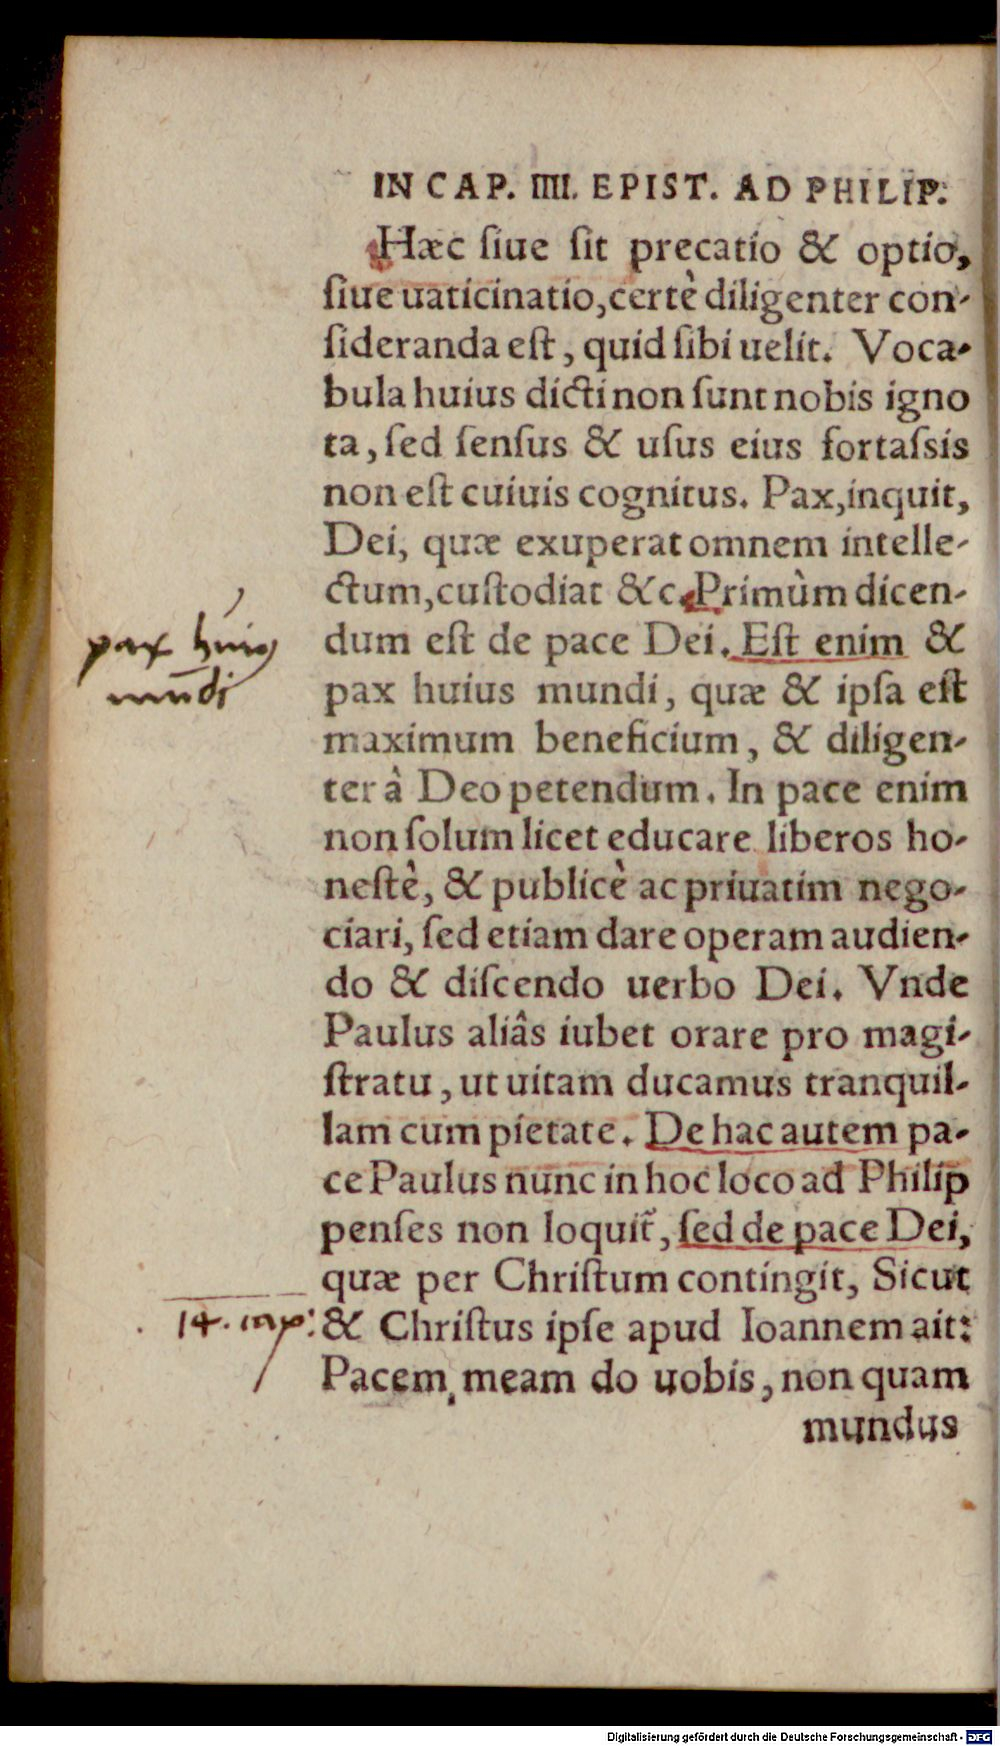 IN CAP. IIII. EPIST. AD PHILIP.
Hæc ſiue ſit precatio & optio,
ſiue uaticinatio, certè diligenter con-
ſideranda eſt, quid ſibi uelit. Voca-
bula huius dicti non ſunt nobis igno
ta, ſed ſenſus & uſus eius fortaſsis
non eſt cuiuis cognitus. Pax, inquit,
Dei, quæ exuperat omnem intelle-
ctum, cuſtodiat &c. Primùm dicen-
dum eſt de pace Dei. Eſt enim &
pax huiꝰ
mūdi
pax huius mundi, quæ & ipſa eſt
maximum beneficium, & diligen-
ter â Deo petendum. In pace enim
non ſolum licet educare liberos ho-
neſtè, & publicè ac priuatim nego-
ciari, ſed etiam dare operam audien-
do & diſcendo uerbo Dei. Vnde
Paulus aliâs iubet orare pro magi-
ſtratu, ut uitam ducamus tranquil-
lam cum pietate. De hac autem pa-
ce Paulus nunc in hoc loco ad Philip
penſes non loquit̃, ſed de pace Dei,
quæ per Chriſtum contingit, Sicut
14. cap:
& Chriſtus ipſe apud Ioannem ait:
Pacem meam do uobis, non quam
mundus
Digitalisierung gefördert durch die Deutsche Forschungsgemeinschaft - DFG